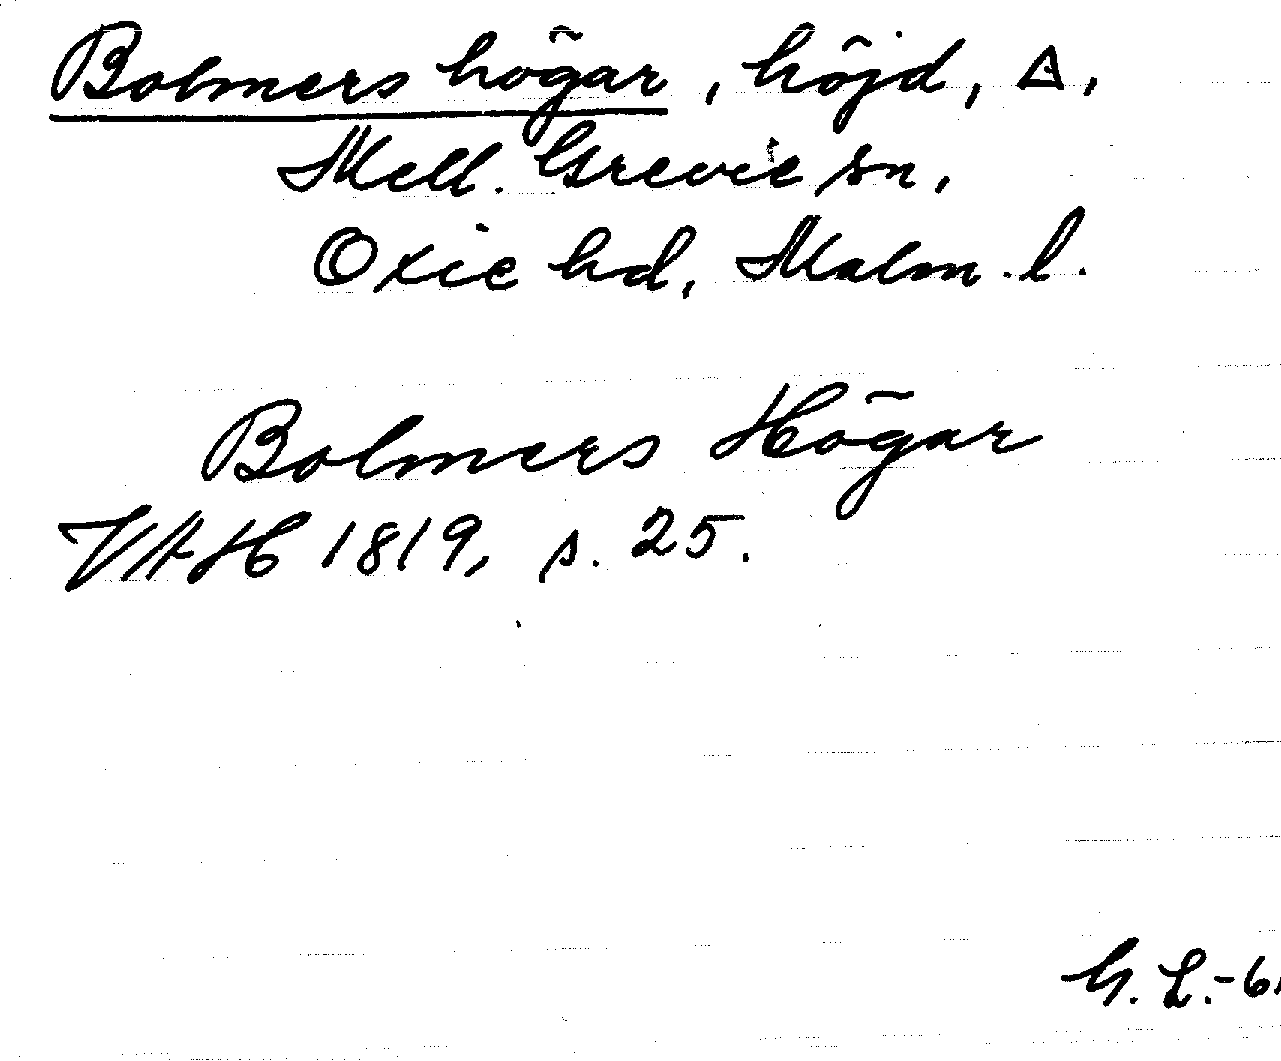 Bolmers högar, höjd, Δ,
Mell. Grevie sn,
Oxie hd, Malm. l.
Bolmers Högar
VAH 1819, s. 25.